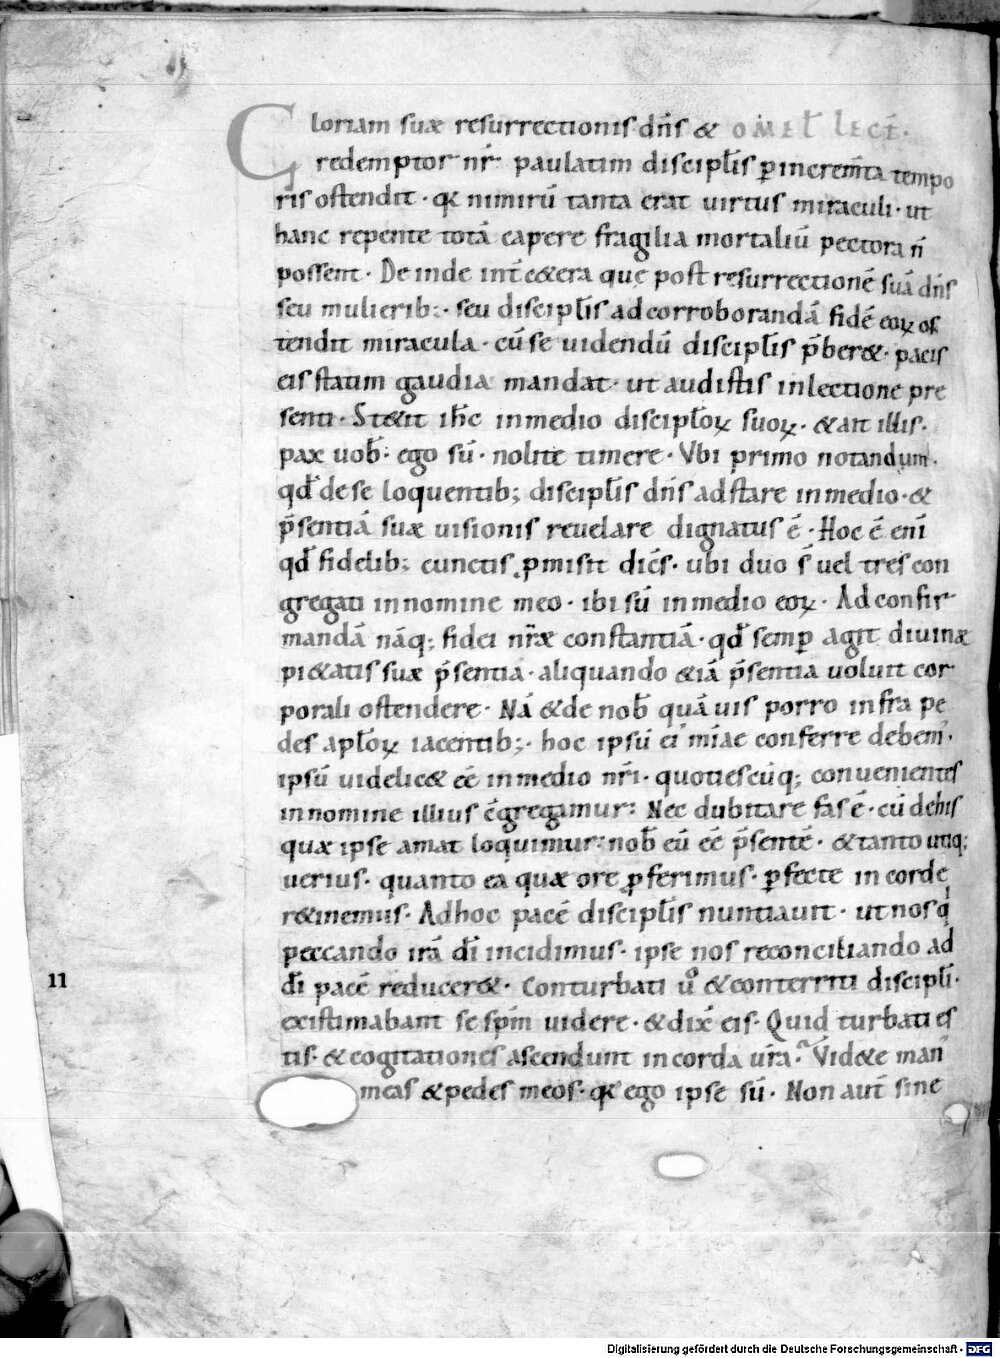 Gloriam suæ resurrectionis dn̄s & OMEL̄ LECT̄.
redemptor nr̄ paulatim discipl̄is ꝑincrem̄ta tempo
ris ostendit · qƚ nimirū tanta erat uirtus miraculi · ut
hanc repente totā capere fragilia mortaliū pectora n̄
possent · De inde int̄ c&era que post resurrectionē suā dn̄s
seu mulierib; · seu discipl̄is ad corroborandā fidē eoꝝ os
tendit miracula · cū se uidendū discipl̄is p̄ber& · pacis
eis statim gaudia mandat · ut audistis in lectione pre
senti · St&it ih̄c in medio discipl̄oꝝ suoꝝ · & ait illis ·
pax uob̄ · ego sū · nolite timere · Vbi primo notandum ·
qd̄ de se loquentib; discipl̄is dn̄s adstare in medio · &
p̄sentiā suæ uisionis reuelare dignatus ē · Hoc ē eni̅
qd̄ fidelib; cunctis ꝓmisit dic̄s · ubi duo s̄ uel tres con
gregati in nomine meo · ibi sū in medio eoꝝ · Ad confir
mandā nāq; fidei nr̄æ constantiā · qd̄ semꝑ agit diuinæ
pi&atis suæ p̄sentia · aliquando & iā p̄sentia uoluit cor
porali ostendere · Nā & de nob̄ quāuis porro infra pe
des apl̄oꝝ iacentib; · hoc ipsū ei' miāc conferre debem' ·
ipsū uidelic& eē in medio nr̄i · quotiescūq; conuenientes
in nomine illius c̄gregamur: Nec dubitare fas ē · cū de his
quæ ipse amat loquimur: nob̄ eū eē p̄sentē · & tanto utiq;
uerius · quanto ea quæ ore ꝓferimus · ꝑfecte in corde
r&inemus · Ad hoc pacē discipl̄is nuntiauit · ut nos q'
peccando irā dī incidimus · ipse nos reconciliando ad
dī pacē reducer& · Conturbati ůº & conterriti discipl̄i ·
existimabant se sp̄m uidere · & dix̄ eis · Quid turbati es
tis · & cogitationes ascendunt in corda ur̄a? Vid&e man'
meas & pedes meos · qƚ ego ipse sū · Non aut̄ sine
11
Digitalisierung gefördert durch die Deutsche Forschungsgemeinschaft - DFG